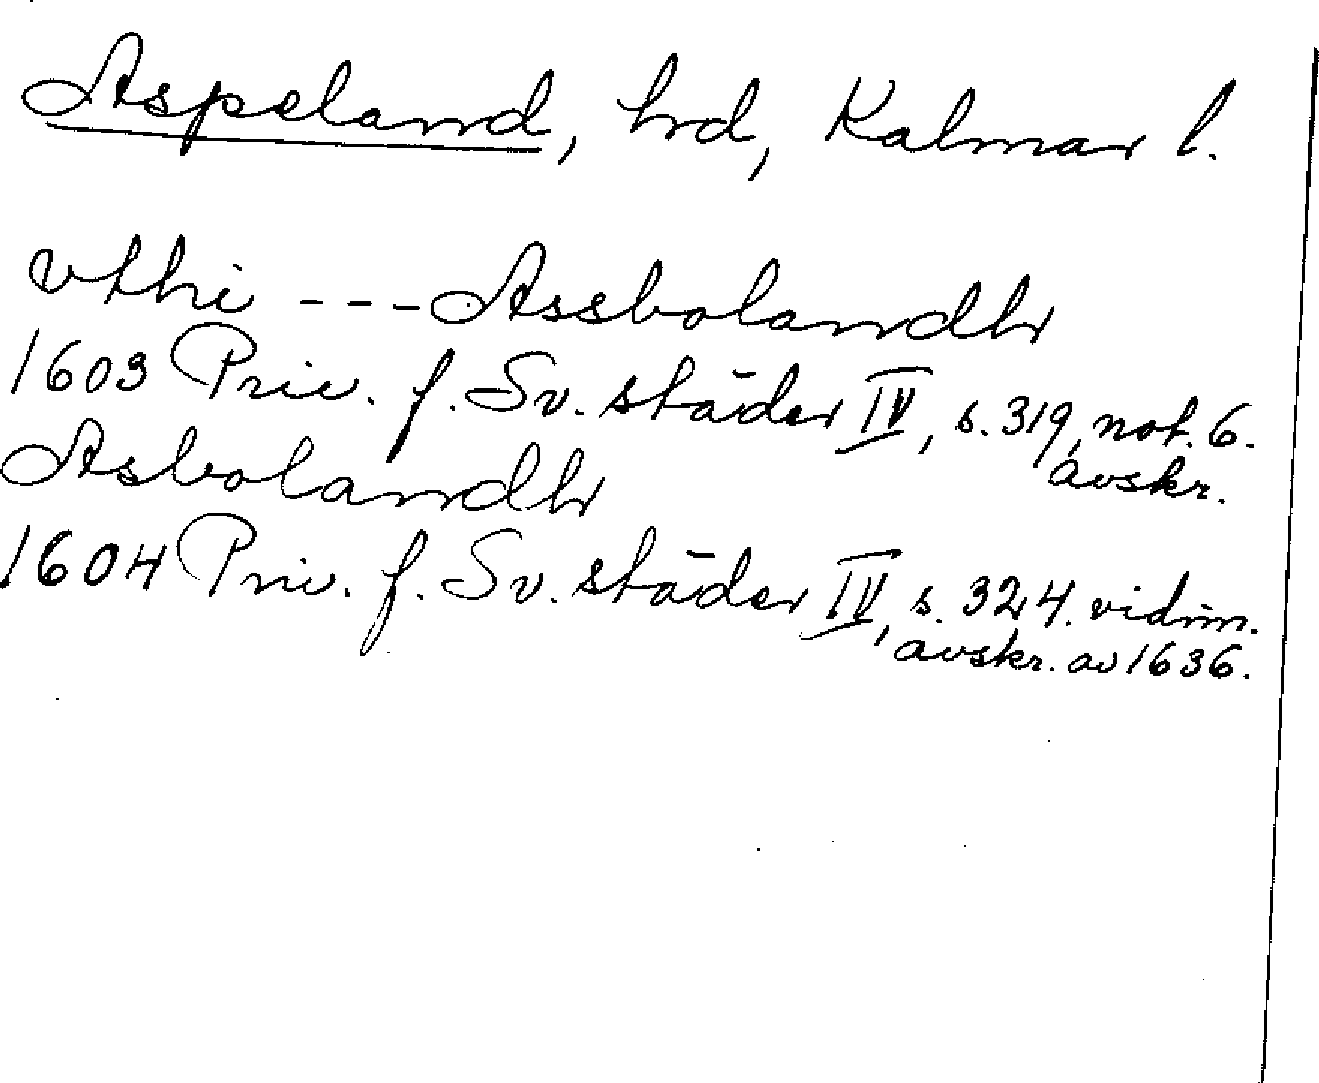 Aspeland, hrd, Kalmar l.
vthi --- Assbolandh
1603 Priv. f. Sv. städer IV, s. 319, not. 6.
avskr.
Asbolandh
1604 Priv. f. Sv. städer IV, s. 324. vidim.
avskr. av 1636.